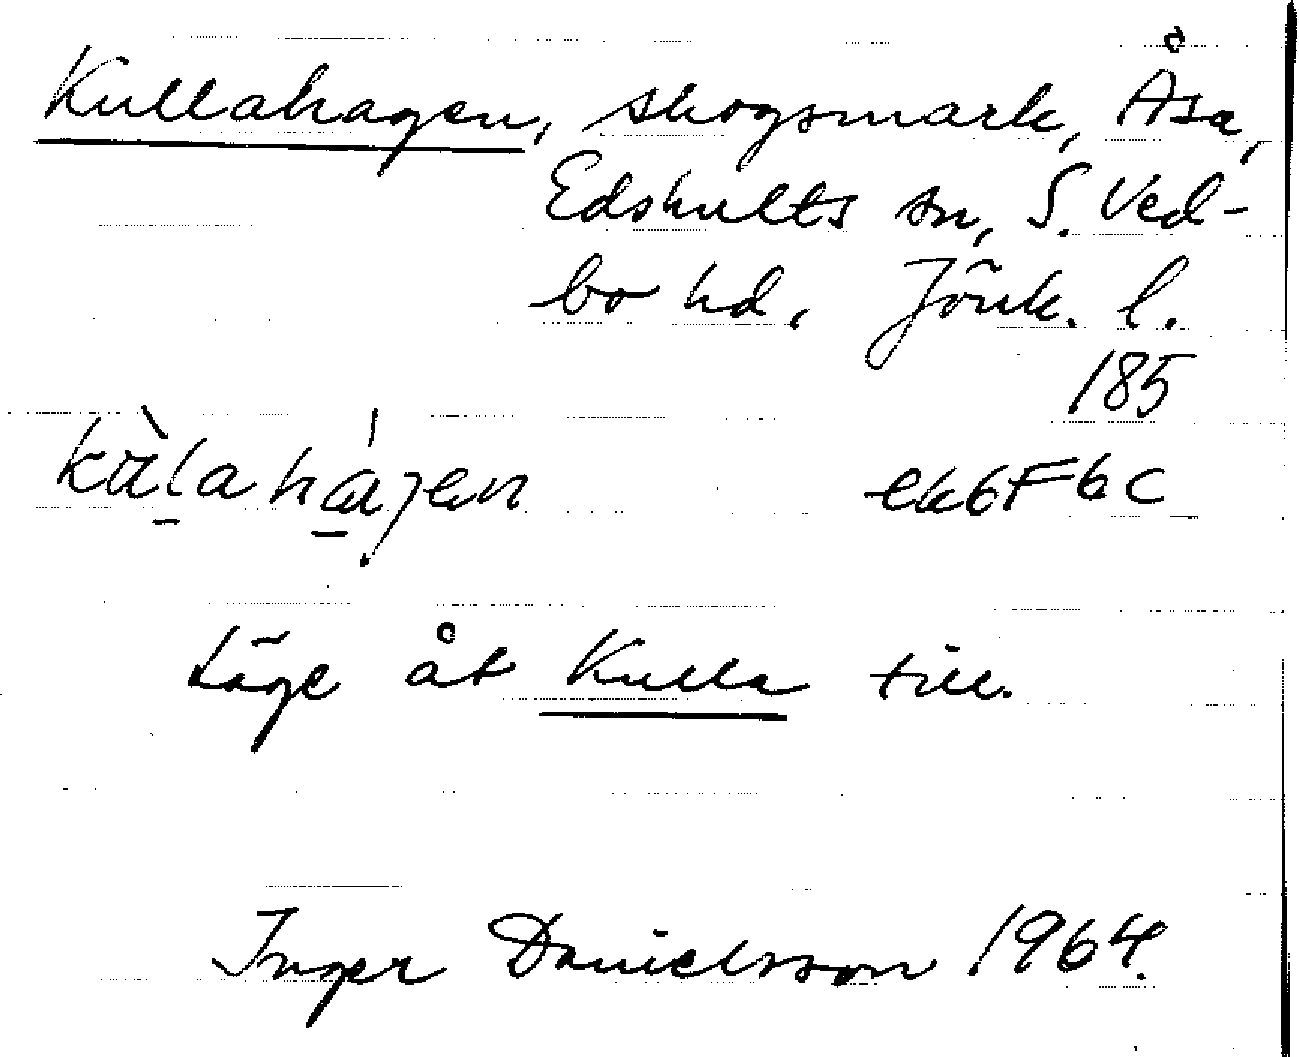 Kullahagen, skogsmark, Åsa,
Edshults sn, S. Ved-
bo hd, Jönk. l.
185
kùlahájen ek6F6c
Läge åt Kulla till.
Inger Danielsson 1964.